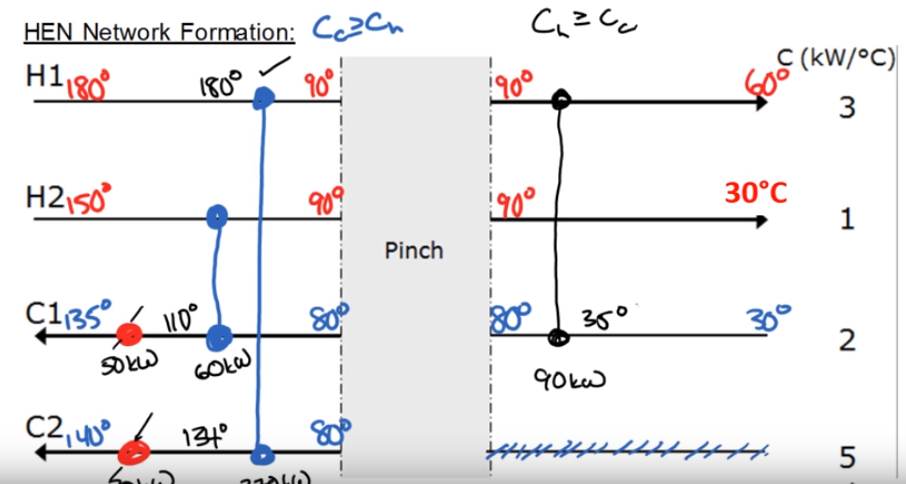 HEN Network Formation: Cc≥Ch Ch≥Cc
C (kW/°C)
H1 180° 180° ✓ 90° 90° 60° 3
H2 150° 90° 90° 30°C 1
Pinch
C1 135° 110° 80° 80° 35° 30° 2
50kW 60kW 90kW
C2 140° 134° 80° 5